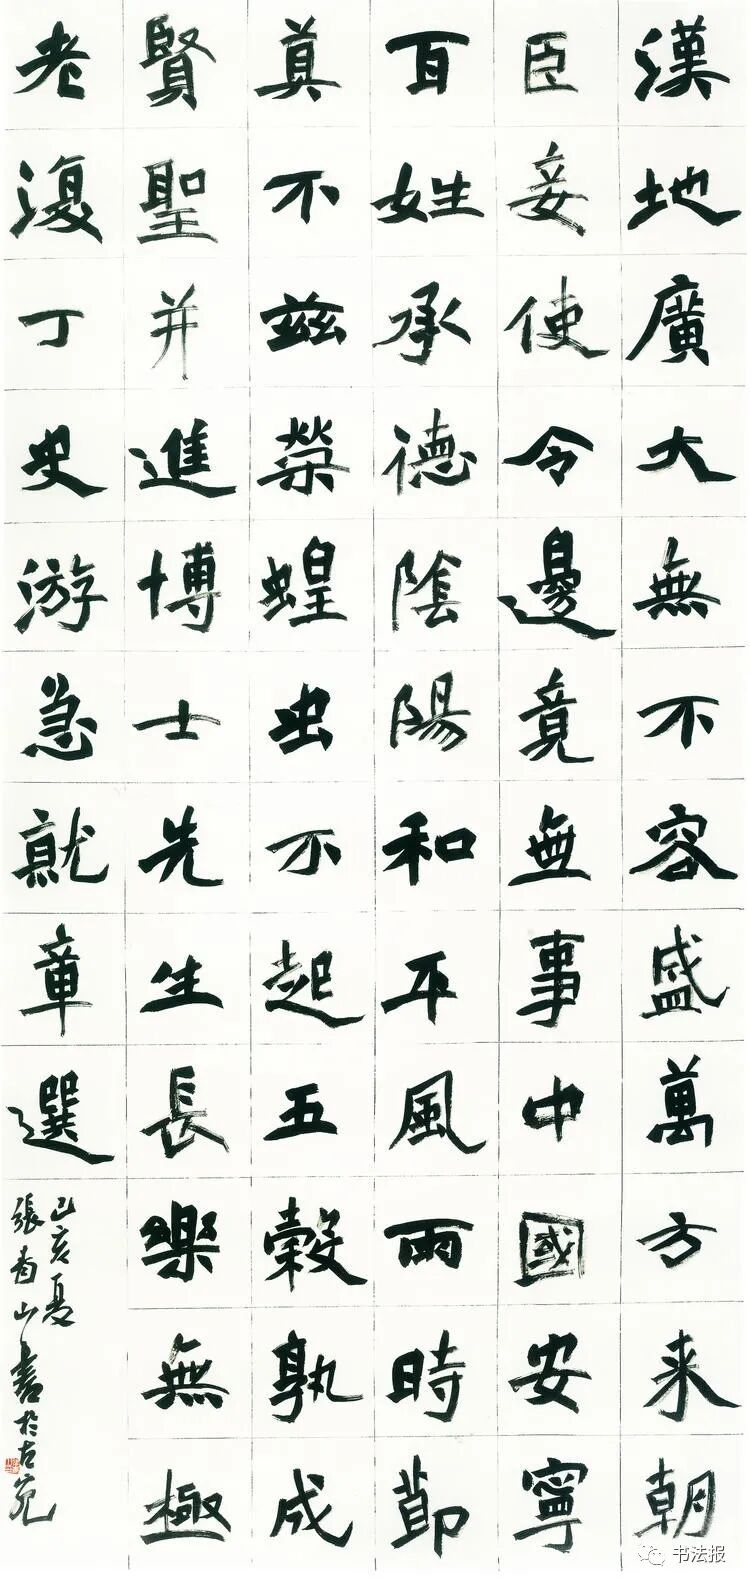 漢地廣大無不容盛萬方来朝
臣妾使令邊竟無事中國安寧
百姓承德陰陽和平風雨時節
莫不兹榮蝗虫不起五穀孰成
賢聖并進博士先生長樂無極
老復丁史游急就章選
己亥夏
張青山書於古宛
书法报